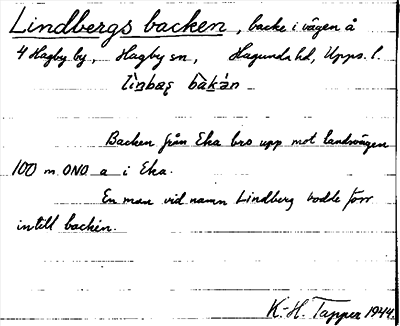 Lindbergs backen, backe i vägen å
4 Hagby by, Hagby sn, Hagunda hd, Upps. l.
lìnbæş bàkán
Backen från Eka bro upp mot landsvägen
100 m ONO a i Eka.
En man vid namn Lindberg bodde förr
intill backen.
K.-H. Tapper 1944.